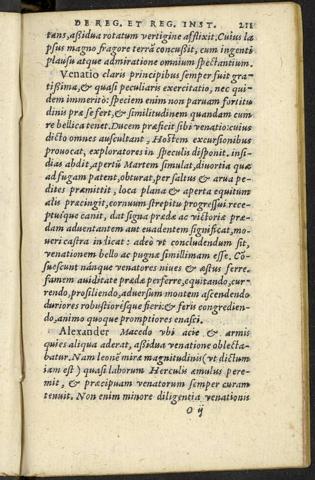 DE REG. ET REG. INST. 211
tans, aßidua rotatum vertigine afflixit. Cuius la
psus magno fragore terrã concußit, cum ingenti
plausu atque admiratione omnium spectantium.
Venatio claris principibus semper fuit gra-
tißima, & quasi peculiaris exercitatio, nec qui-
dem immerito: speciem enim non paruam fortitu
dinis præ se fert, & similitudinem quandam cum
re bellica tenet. Ducem præficit sibi venatio: cuius
dicto omnes auscultant, Hostem excursionibus
prouocat, exploratores in speculis disponit, insi-
dias abdit, apertũ Martem simulat, diuortia quæ
ad fugam patent, obturat, per saltus & arua pe-
dites præmittit, loca plana & aperta equitum
alis præcingit, cornuum strepitu progressui, rece-
ptuíque canit, dat signa prædæ ac victoriæ præ-
dam aduentantem aut euadentem significat, mo-
ueri castra indicat: adeò vt concludendum sit,
venationem bello ac pugnæ simillimam esse. Co-
suescunt nánque venatores niues & æstus ferre,
famem auiditate prædæ perferre, equitando, cur-
rendo, prosiliendo, aduersum montem ascendendo
duriores robustiorésque fieri: & feris congredien-
do, animo quoque promptiores enasci.
Alexander Macedo vbi acie & armis
quies aliqua aderat, aßidua venatione oblecta-
batur. Nam leonẽ miræ magnitudinis (vt dictum
iam est) quasi laborum Herculis æmulus pere-
mit, & præcipuam venatorum semper curam
tenuit. Non enim minore diligentia venationis
O ij